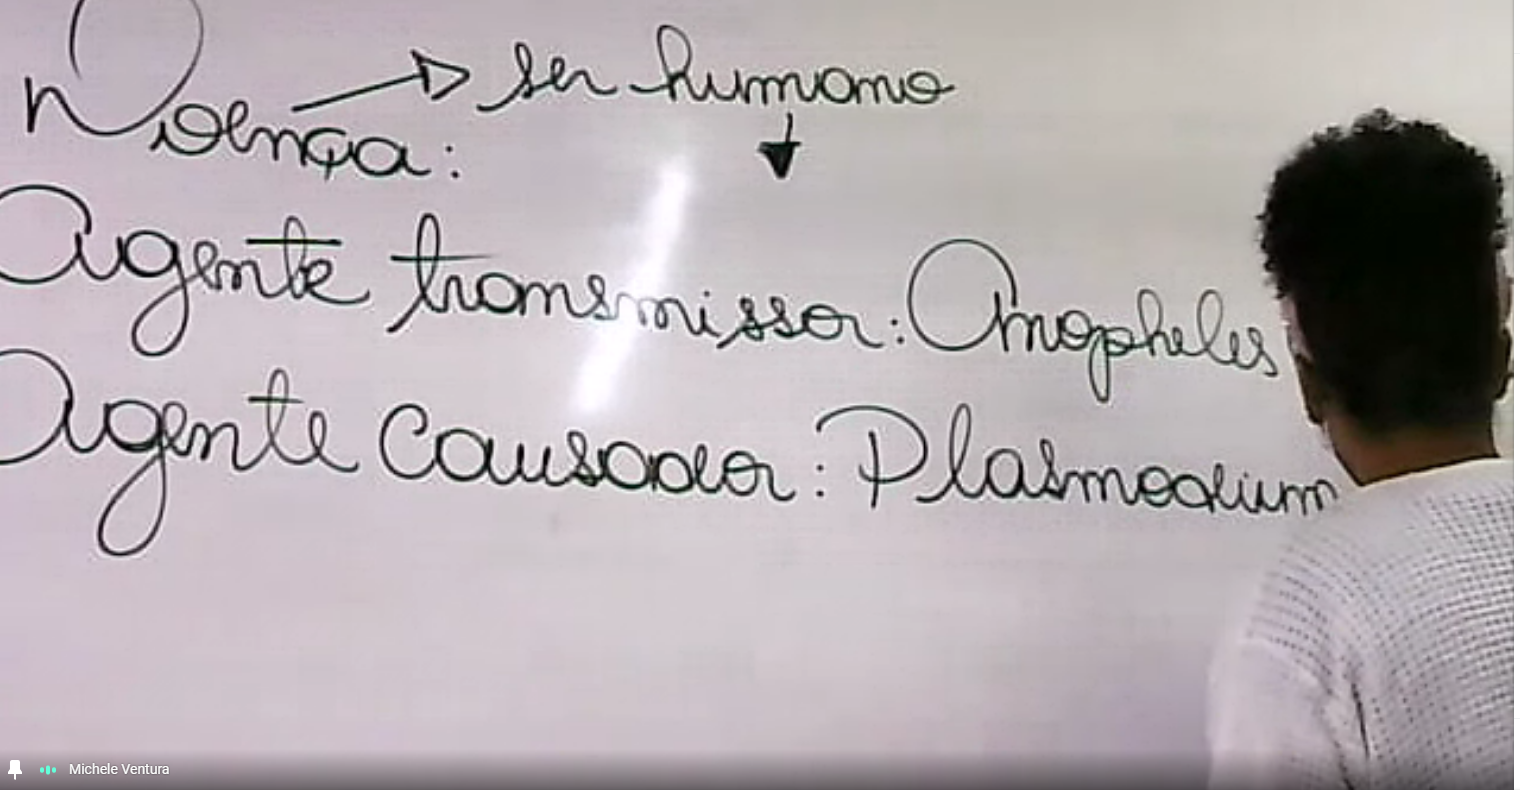 Doença: → ser humano
↓
Agente transmissor: Anopheles
Agente causador: Plasmodium
Michele Ventura